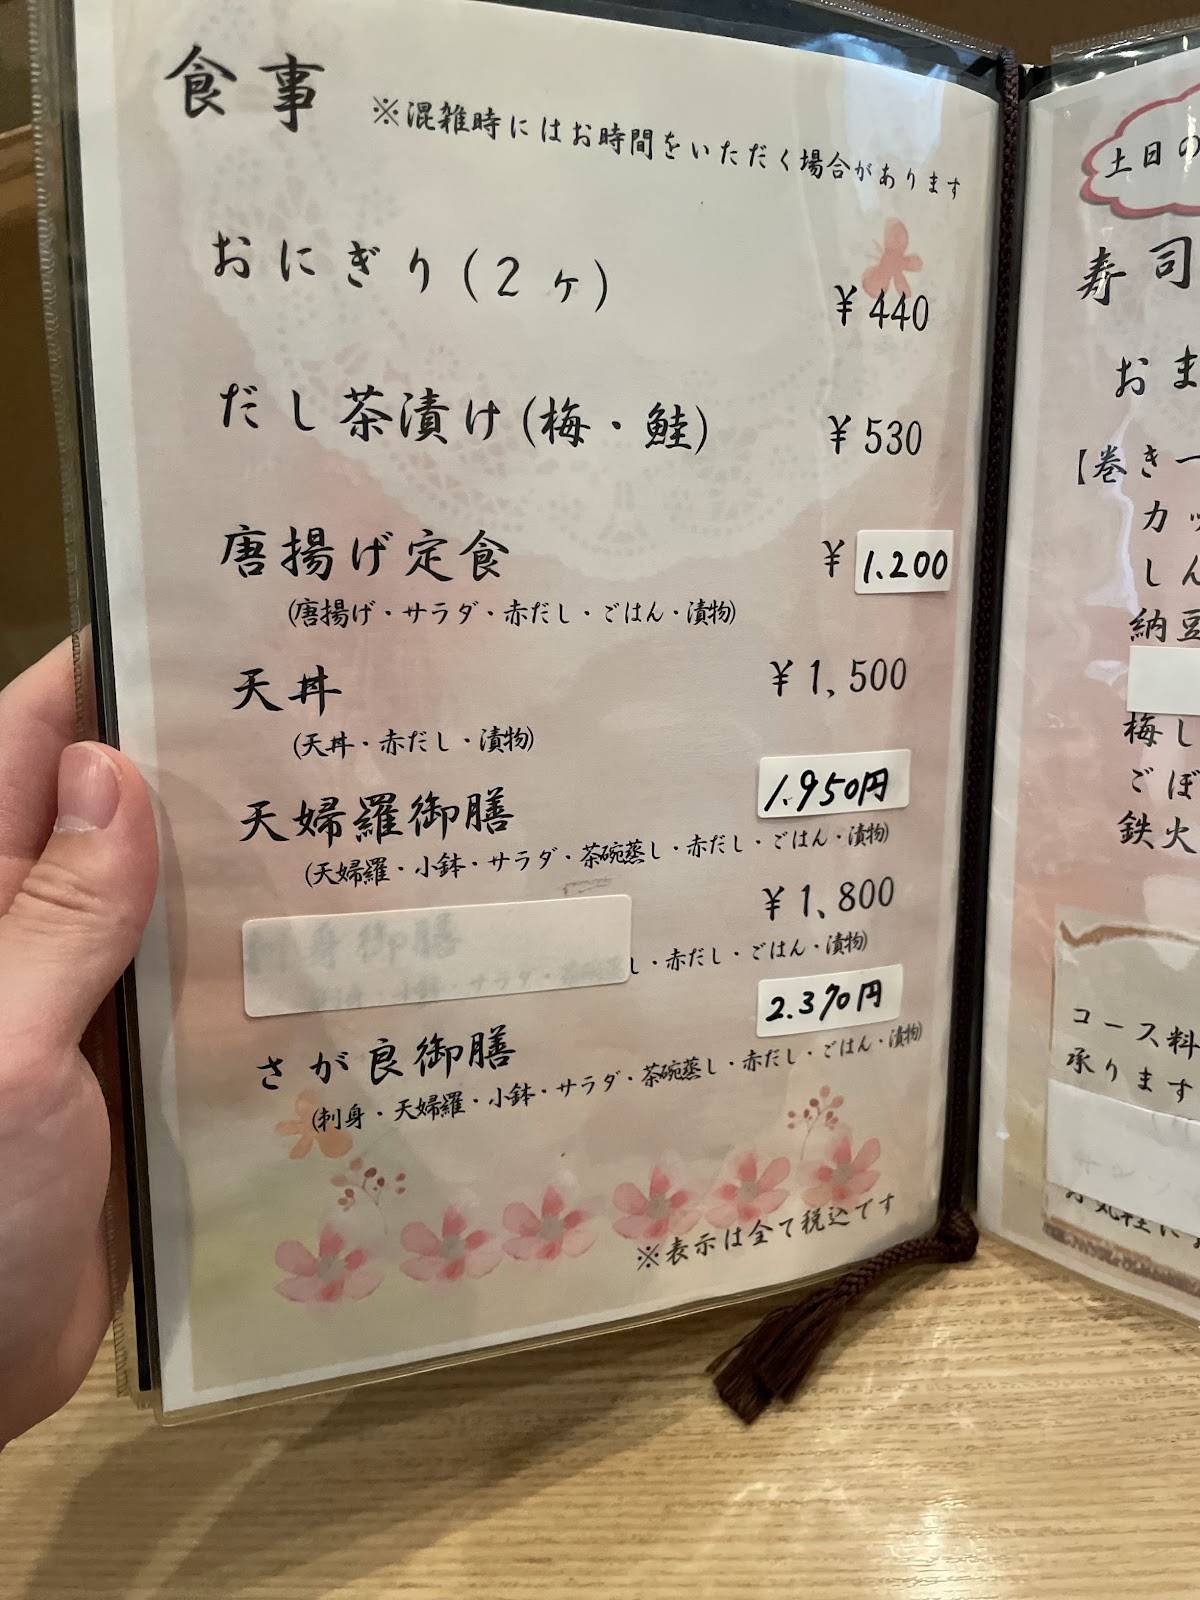 食事
※混雑時にはお時間をいただく場合があります
おにぎり(2ヶ) ¥440
だし茶漬け(梅・鮭) ¥530
唐揚げ定食 ¥1.200
(唐揚げ・サラダ・赤だし・ごはん・漬物)
天丼 ¥1,500
(天丼・赤だし・漬物)
天婦羅御膳 1.950円
(天婦羅・小鉢・サラダ・茶碗蒸し・赤だし・ごはん・漬物)
刺身御膳 ¥1,800
し・赤だし・ごはん・漬物)
さが良御膳 2.370円
(刺身・天婦羅・小鉢・サラダ・茶碗蒸し・赤だし・ごはん・漬物)
※表示は全て税込です
土日の
寿司
おま
【巻き一
カッ
しん
納豆
梅し
ごぼ
鉄火
コース料
承ります